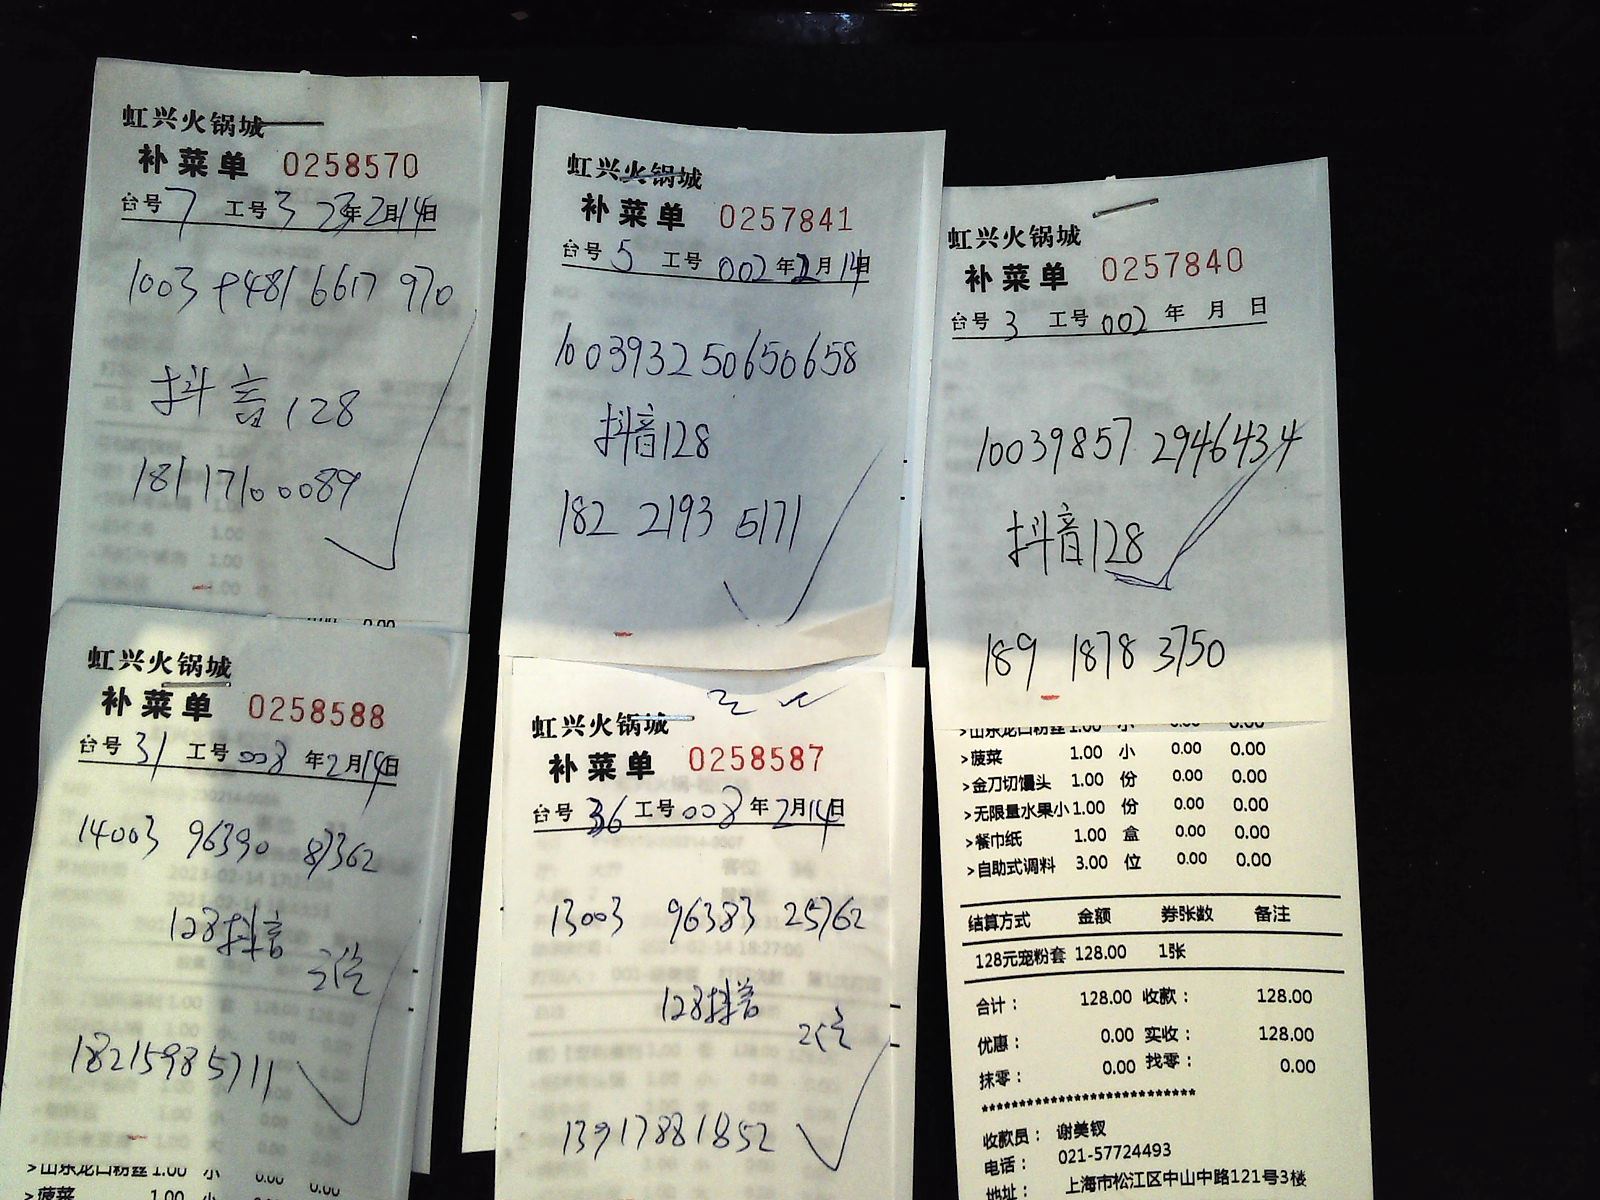 虹兴火锅城
补菜单 0258570
台号 7 工号 3 23年2月14日
抖音128
18117100089
虹兴火锅城
补菜单 0257841
台号 5 工号 002 年2月14日
100393250650658
抖音128
182 2193 5171
虹兴火锅城
补菜单 0257840
台号 3 工号 002 年 月 日
10039857 2946434
抖音128
189 1878 3750
虹兴火锅城
补菜单 0258588
台号 31 工号 008 年2月14日
14003 96390 87362
128抖音
18215985711
>山东龙口粉丝 1.00 小 0.00 0.00
>菠菜 1.00 小
虹兴火锅城
补菜单 0258587
台号 36 工号 008 年2月14日
13003 96383 25762
128抖音
13917881852
>山东龙口粉丝 1.00 小 0.00 0.00
>菠菜 1.00 小 0.00 0.00
>金刀切馒头 1.00 份 0.00 0.00
>无限量水果小 1.00 份 0.00 0.00
>餐巾纸 1.00 盒 0.00 0.00
>自助式调料 3.00 位 0.00 0.00
结算方式 金额 券张数 备注
128元宠粉套 128.00 1张
合计： 128.00 收款： 128.00
优惠： 0.00 实收： 128.00
抹零： 0.00 找零： 0.00
***************************
收款员： 谢美钗
电话： 021-57724493
地址： 上海市松江区中山中路121号3楼